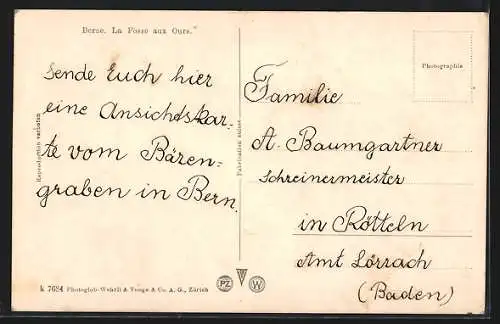 Berne. La Fosse aux Ours.
Sende Euch hier
eine Ansichtskar-
te vom Bären-
graben in Bern.
Reproduction verboten
Fabrication suisse
Photographie
Familie
A. Baumgartner
Schreinermeister
in Rötteln
Amt Lörrach
(Baden)
k 7624 Photoglob-Wehrli & Vouga & Co. A. G., Zürich
PZ
W